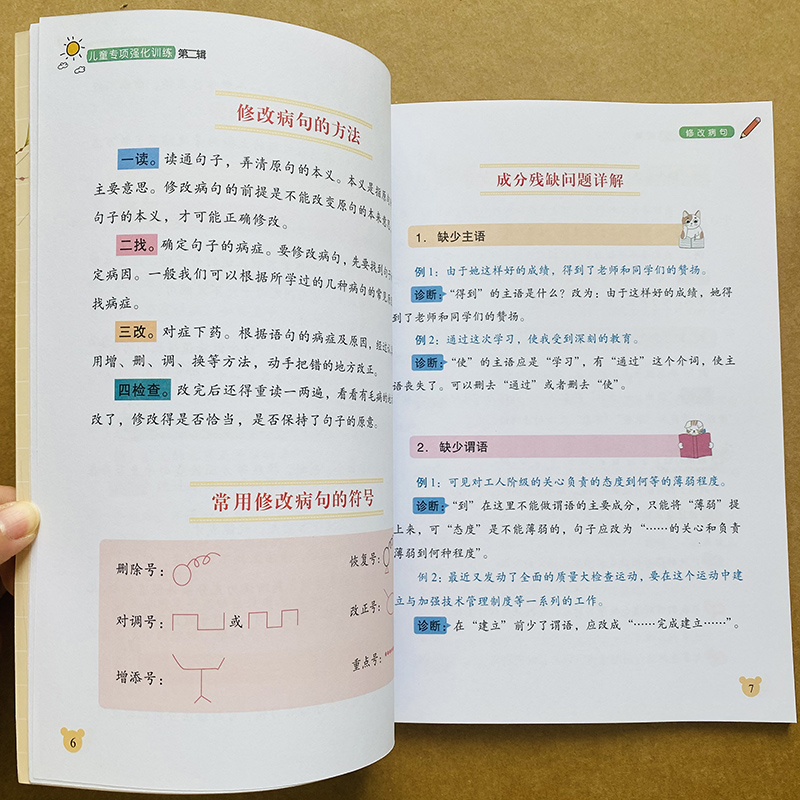 儿童专项强化训练 第二辑
修改病句的方法
一读。读通句子，弄清原句的本义。本义是指原
主要意思。修改病句的前提是不能改变原句的本来意思
句子的本义，才可能正确修改。
二找。确定句子的病症。要修改病句，先要找到
定病因。一般我们可以根据所学过的几种病句的常见
找病症。
三改。对症下药。根据语句的病症及原因，经过
用增、删、调、换等方法，动手把错的地方改正。
四检查。改完后还得重读一两遍，看看有毛病的
改了，修改得是否恰当，是否保持了句子的原意。
常用修改病句的符号
删除号： 恢复号：
对调号： 或 改正号：
增添号： 重点号：
6
修改病句
成分残缺问题详解
1. 缺少主语
例1：由于她这样好的成绩，得到了老师和同学们的赞扬。
诊断：“得到”的主语是什么？改为：由于这样好的成绩，她得
到了老师和同学们的赞扬。
例2：通过这次学习，使我受到深刻的教育。
诊断：“使”的主语应是“学习”，有“通过”这个介词，使主
语丧失了。可以删去“通过”或者删去“使”。
2. 缺少谓语
例1：可见对工人阶级的关心负责的态度到何等的薄弱程度。
诊断：“到”在这里不能做谓语的主要成分，只能将“薄弱”提
上来，可“态度”是不能薄弱的，句子应改为“……的关心和负责
薄弱到何种程度”。
例2：最近又发动了全面的质量大检查运动，要在这个运动中建
立与加强技术管理制度等一系列的工作。
诊断：在“建立”前少了谓语，应改成“……完成建立……”。
7